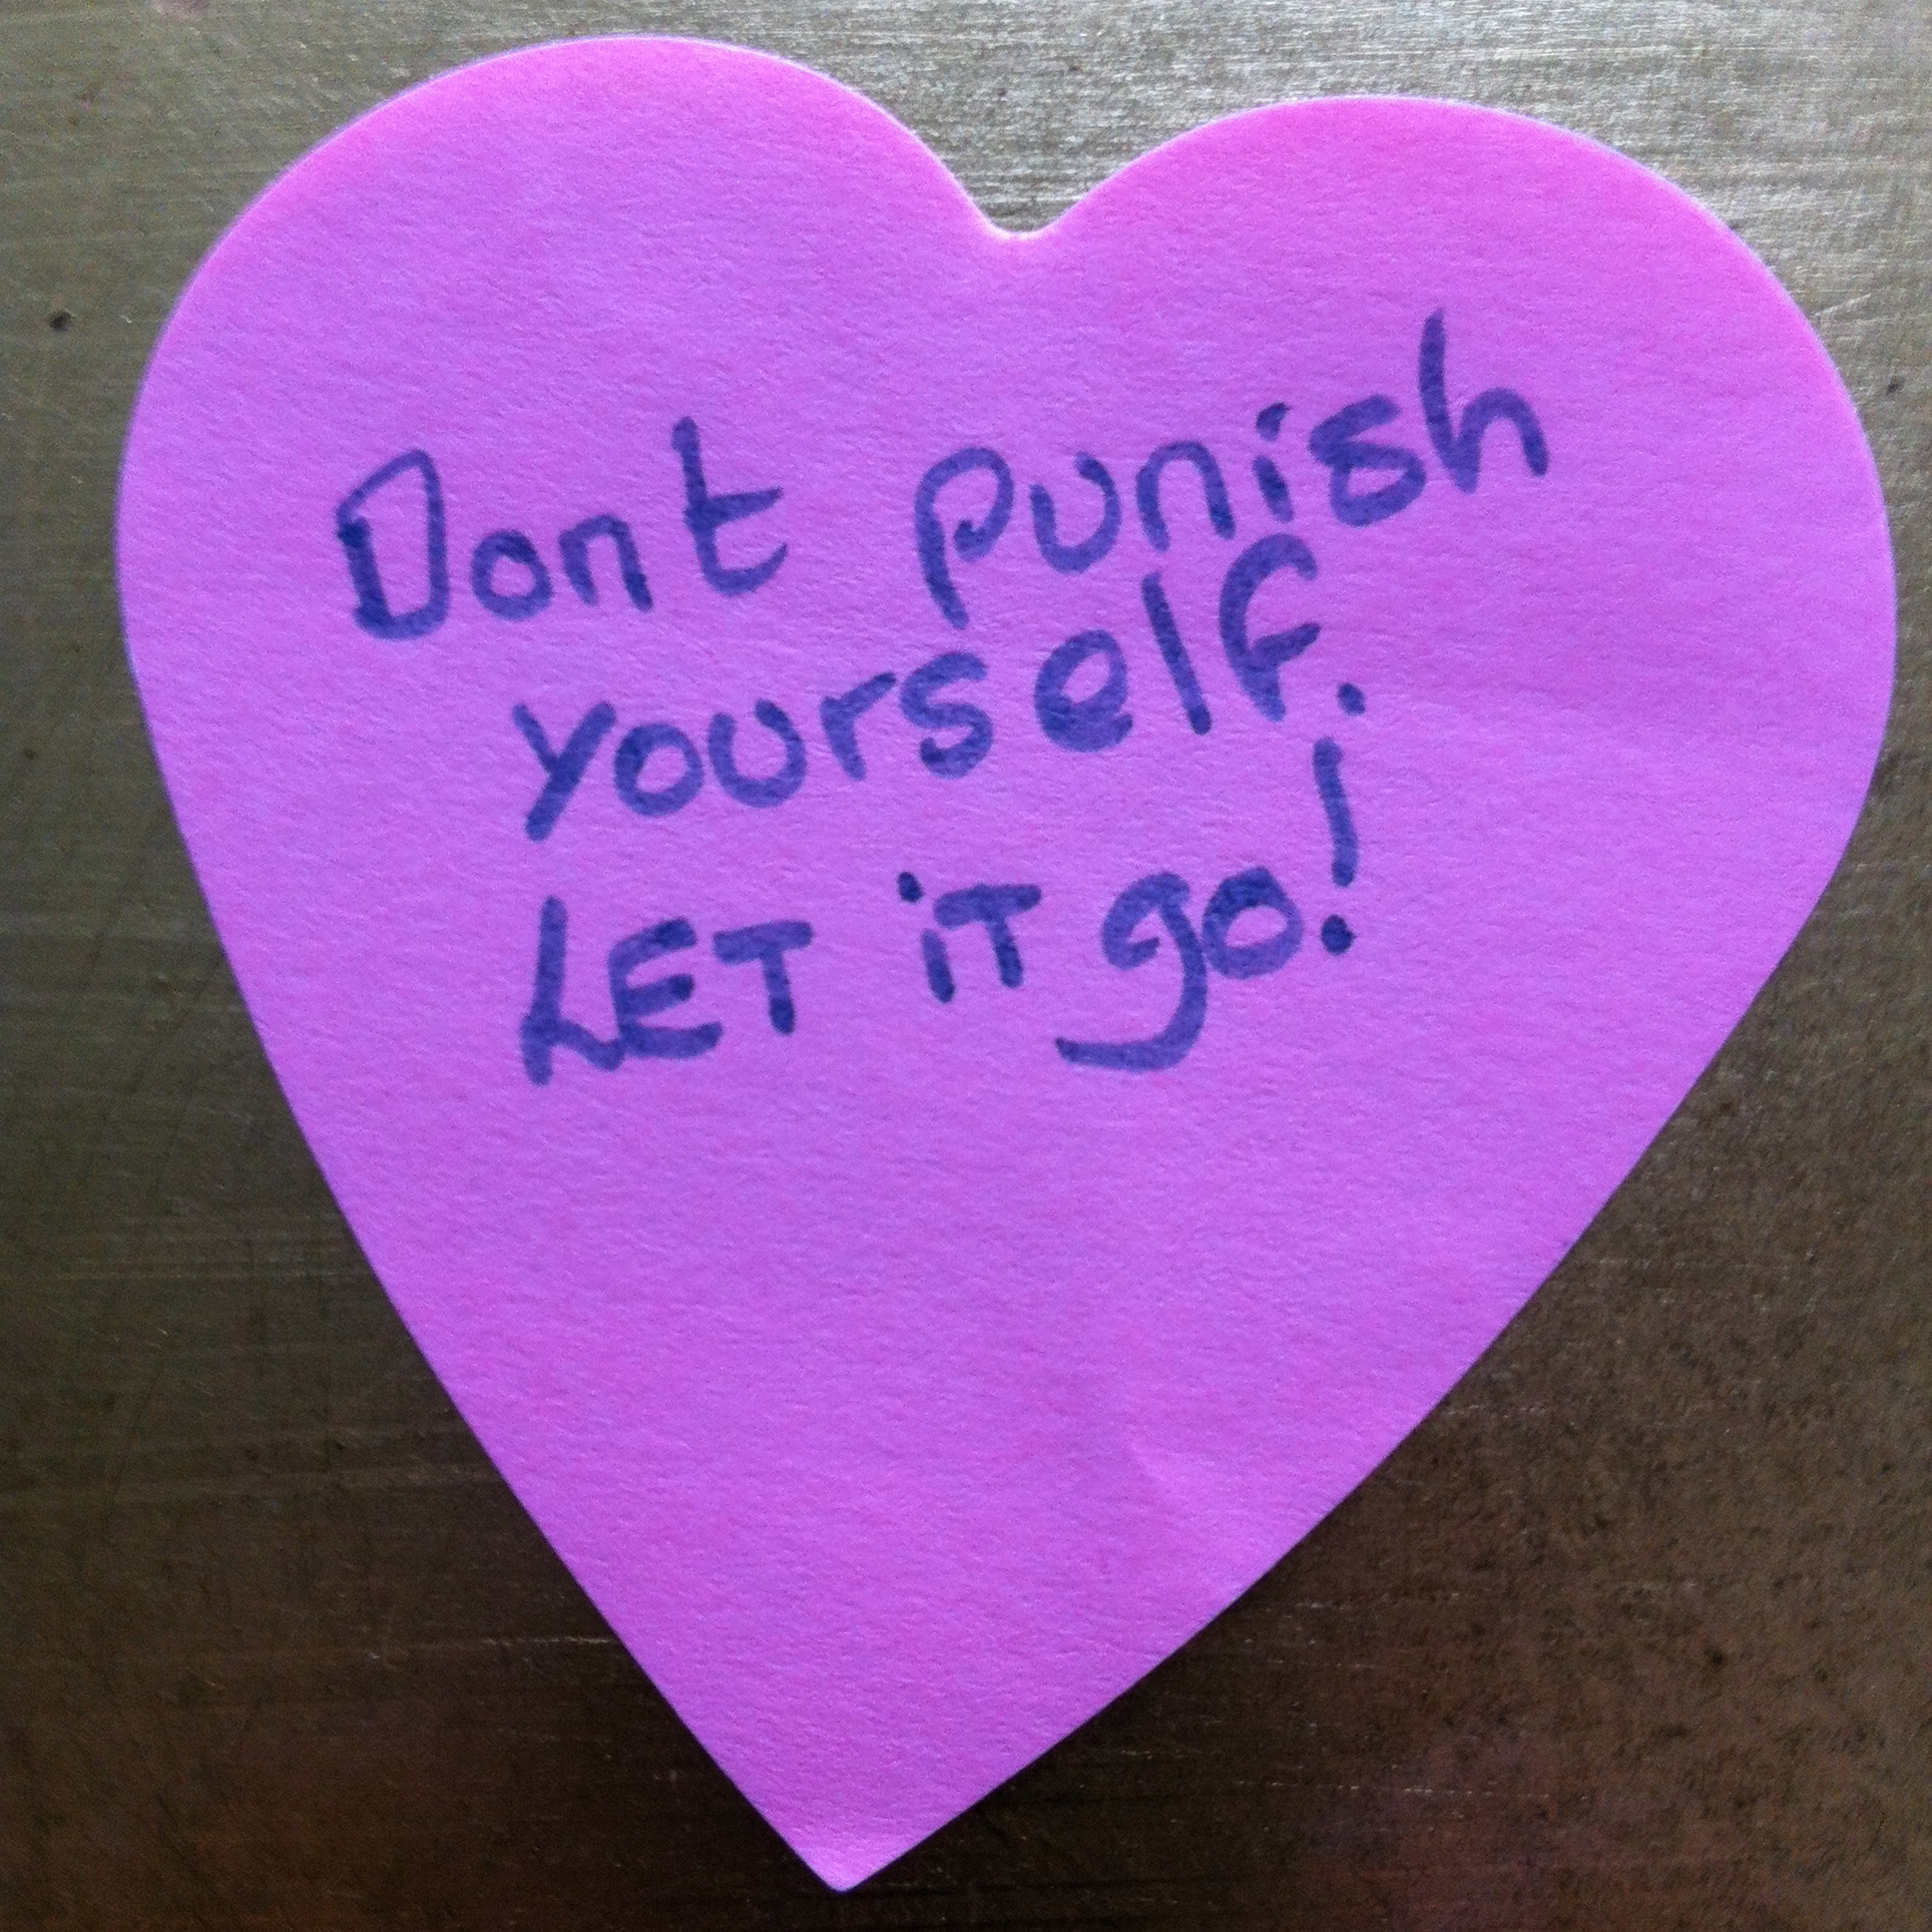 Dont punish
yourself.
LET iT go!